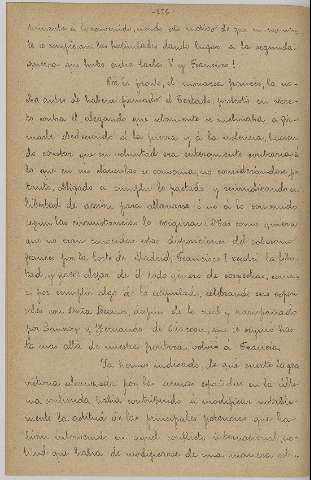 -256-
miento á lo convenido, siendo esto motivo de que en seguida
se rompieran las hostilidades dando lugar á la segunda
guerra que hubo entre Carlos V y Francisco I
Por lo pronto, el monarca francés, la no-
che antes de haberse firmado el Tratado protestó en secre-
to contra él alegando que solamente se inclinaba á fir-
marle cediendo á la fuerza y á la violencia, haciendo
constar que su voluntad era enteramente contraria á
lo que en ese documento se consigna, no considerándose por
tanto, obligado á cumplir lo pactado y reivindicando su
libertad de acción para allanarse ó no á lo convenido
según las circunstancias lo exigieran. Mas como quiera
que no eran conocidas estas disposiciones del soberano
francés por la Corte de Madrid, Francisco I recobró la liber-
tad, y para alejar de él todo género de sospechas, comen-
zó por cumplir algo de lo estipulado, celebrando sus espon-
sales con Doña Leonor, después de lo cual y acompañado
por Lannoy y Hernando de Alarcón, que le siguió has-
ta más allá de nuestra frontera volvió á Francia.
Ya hemos indicado, lo que cierto la gran
victoria alcanzada por las armas españolas en la últi-
ma contienda había contribuido á modificar notable-
mente la actitud de las principales potencias que ha-
bían intervenido en aquel conflicto internacional, ac-
titud que había de modificarse de una manera